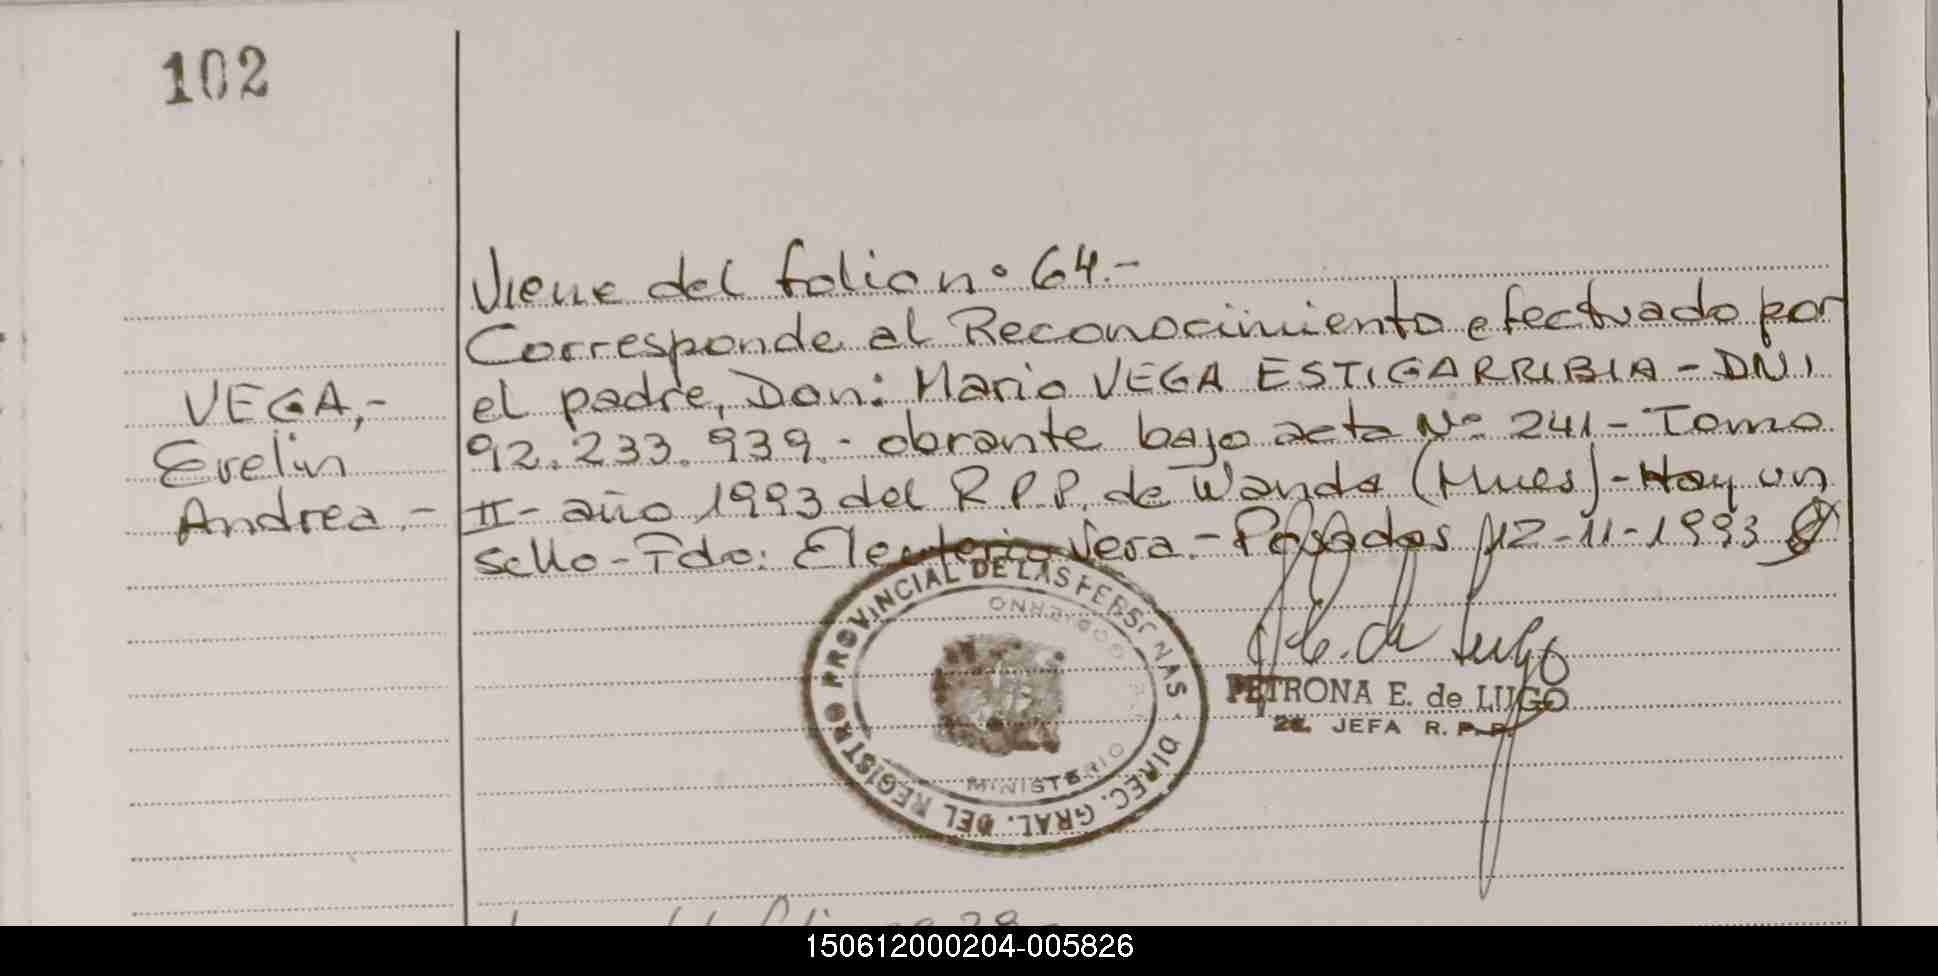 102
Viene del folio nº 64.-
Corresponde al Reconocimiento efectuado por
el padre, Don: Mario VEGA ESTIGARRIBIA - DNI
92.233.939.- obrante bajo acta Nº 241 - Tomo
II - año 1993 del R.P.P. de Wanda (Mnes) - Hay un
sello - Fdo: Eleuterio Vera.- Posadas, 12-11-1993
VEGA,-
Evelin
Andrea.-
DIREC. GRAL. DEL REGISTRO PROVINCIAL DE LAS PERSONAS
MINISTERIO
GOBIERNO
E. de Lugo
PETRONA E. de LUGO
2ª. JEFA R. P. P.
150612000204-005826